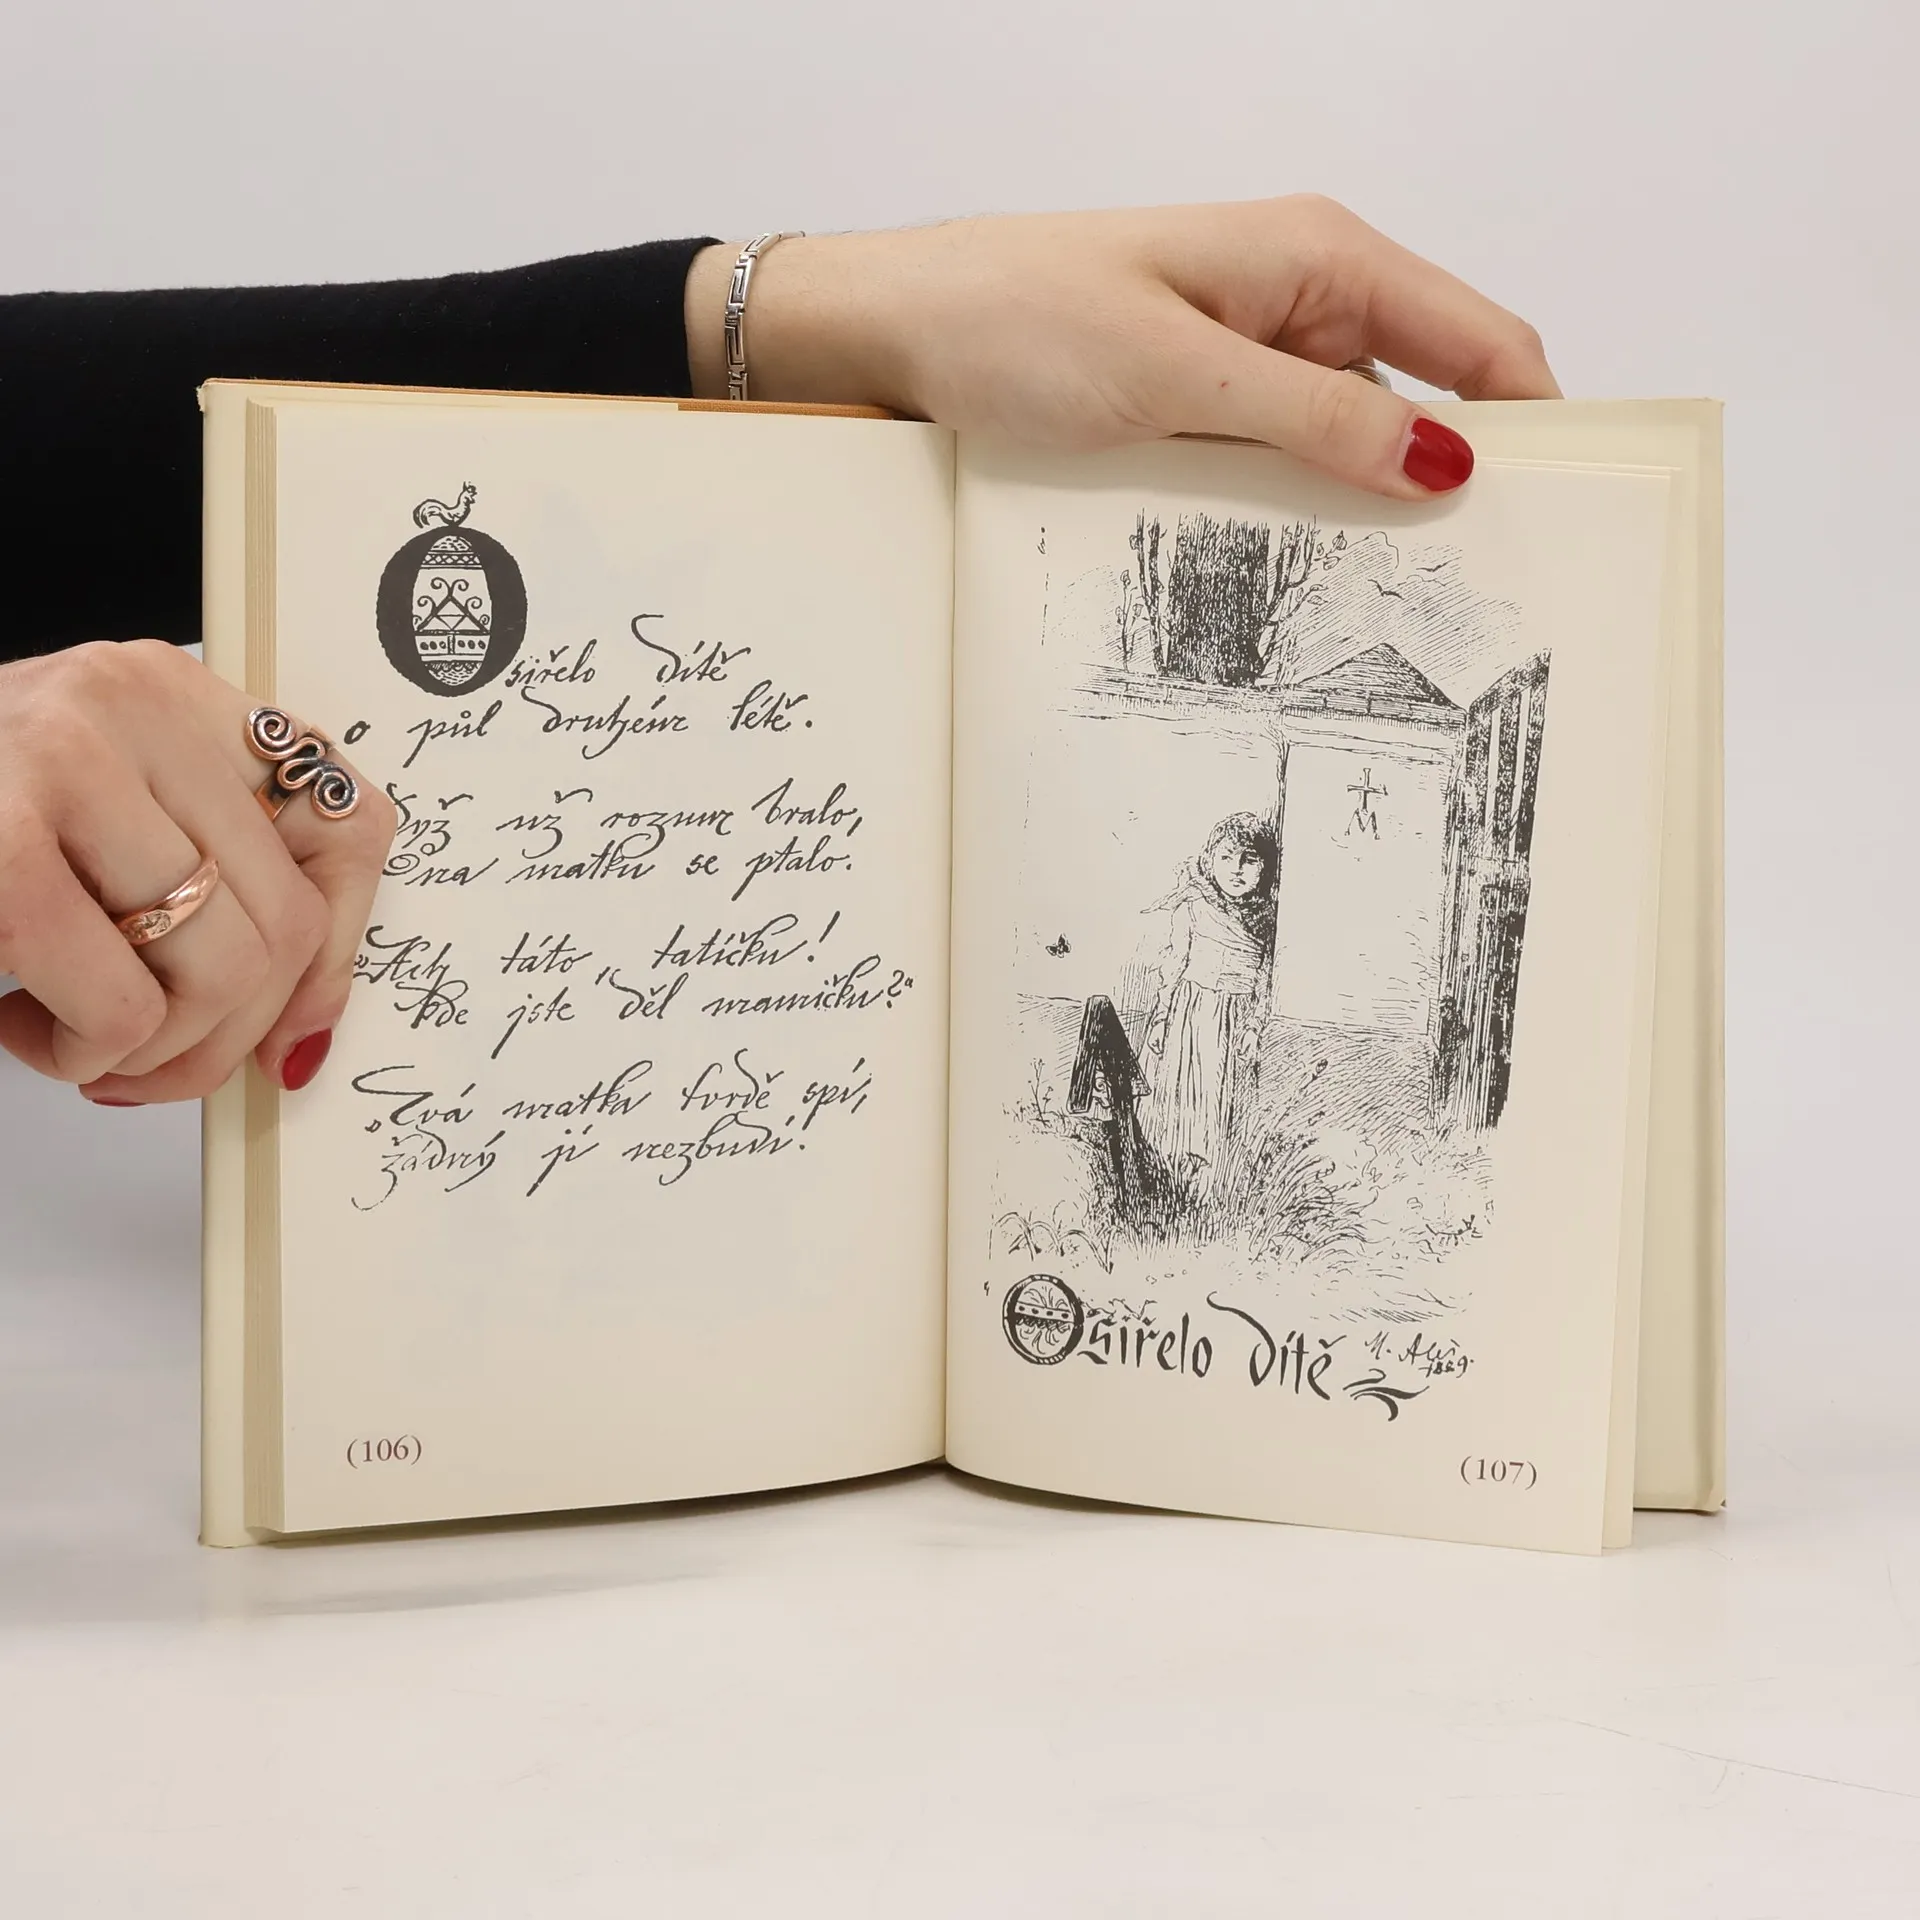 Osiřelo dítě
o půl druhém létě.
Dyž už rozum bralo,
na matku se ptalo.
„Ach táto, tatíčku!
kde jste děl mamičku?“
„Tvá matka tvrdě spí,
žádný jí nezbudí.
(106)
M
Osiřelo dítě
M. Aleš
1889.
(107)